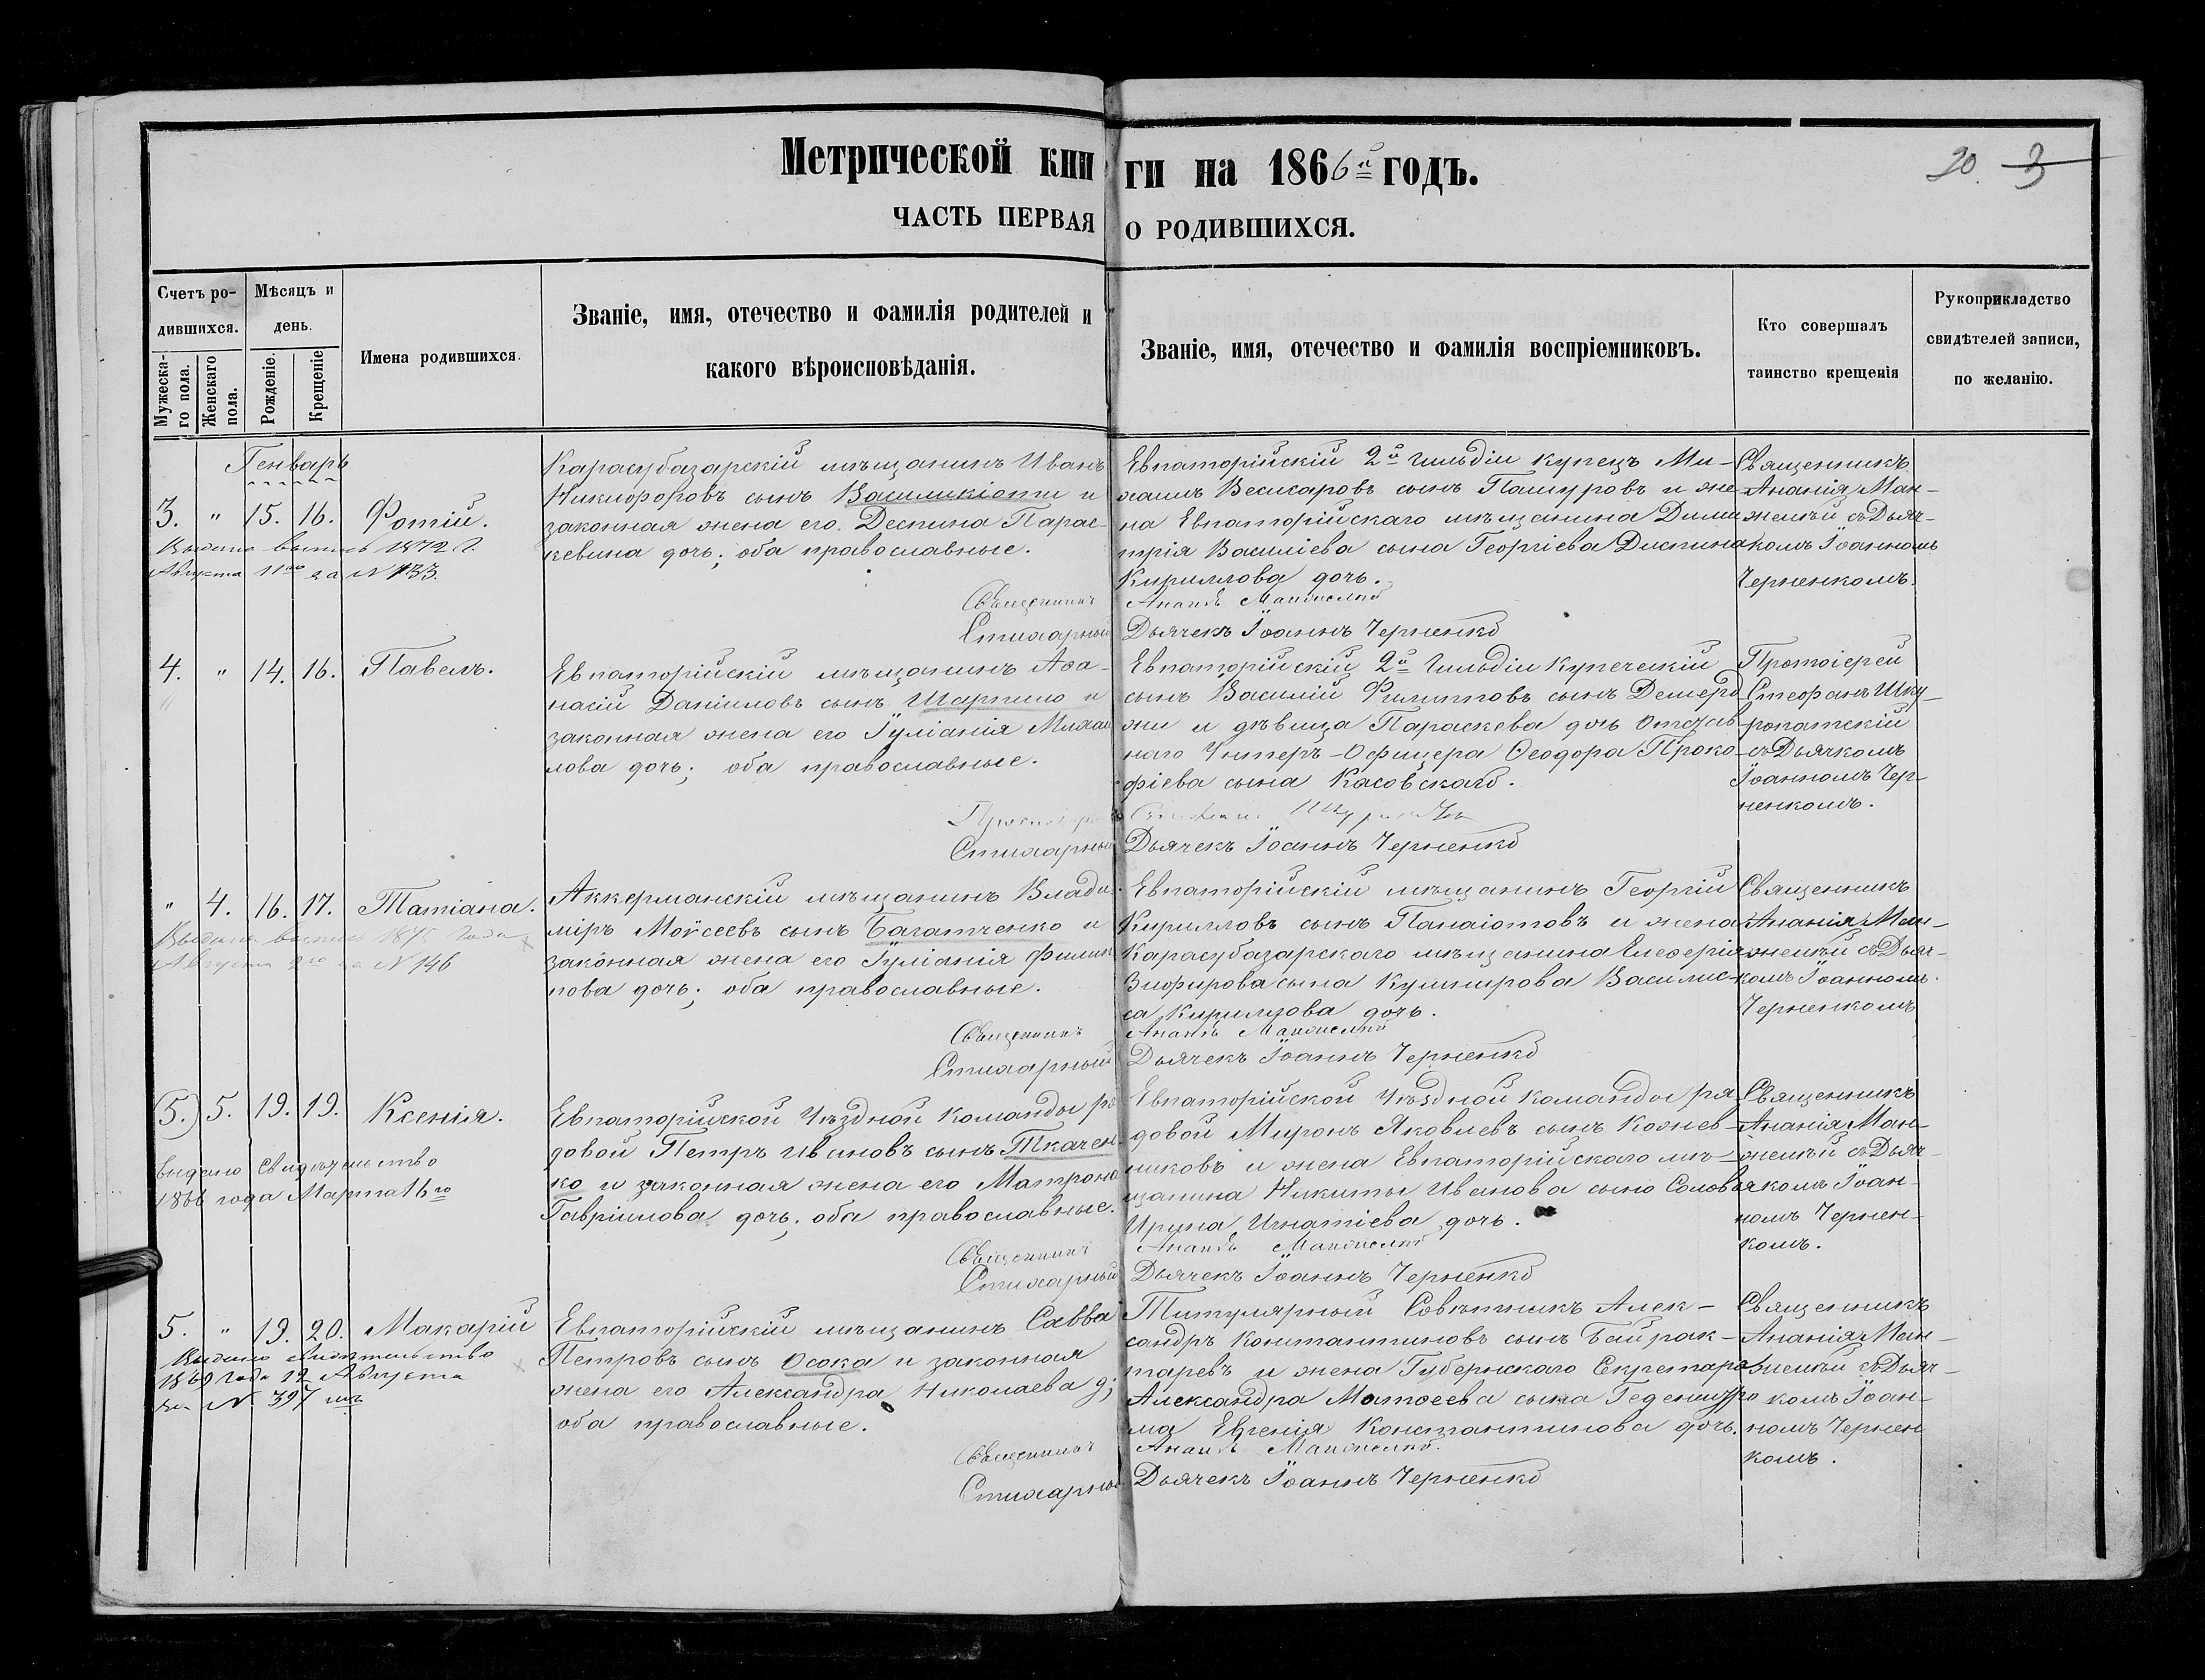 Метрической кни ги на 1866й годъ.
20. 3
ЧАСТЬ ПЕРВАЯ О РОДИВШИХСЯ.
Счетъ ро-
дившихся.
Мужеска-
го пола.
Женскаго
пола.
Мѣсяцъ и
день.
Рожденіе.
Крещеніе
Имена родившихся.
Званіе, имя, отечество и фамилія родителей и
какого вѣроисповѣданія.
Званіе, имя, отечество и фамилія воспріемниковъ.
Кто совершалъ
таинство крещенія
Рукоприкладство
свидѣтелей записи,
по желанію.
Генварь
3. " 15. 16. Фотій.
Выдана выпись 1872 г.
Августа 11го за N 133.
Карасубазарскій мѣщанинъ Иванъ
Никифоровъ сынъ Василикіоти и
законная жена его Деспина Парас-
кевина дочь; оба православные.
Евпаторійскій 2й гильдіи купецъ Ми-
хаилъ Весисаровъ сынъ Пашуровъ и же-
на Евпаторійскаго мѣщанина Дими
трія Василіева сына Георгіева Диспина
Кириллова дочь.
Священникъ
Ананія Ман-
желѣй съ Дьяч-
комъ Іоанномъ
Черненкомъ.
Священникъ Ананія Манжелѣй
Стихарный Дьячекъ Іоаннъ Черненко
4. " 14. 16. Павелъ.
Евпаторійскій мѣщанинъ Аѳа-
насій Даніиловъ сынъ Шарпило и
законная жена его Іуліанія Михаи
лова дочь; оба православные.
Евпаторійскій 2й Гильдіи купеческій
сынъ Василій Филипповъ сынъ Демерд
жи и дѣвица Параскева дочь Отстав
наго Унтеръ-Офицера Ѳеодора Проко-
фіева сына Касовскаго.
Протоіерей
Стефанъ Шку-
ропатскій
съ Дьячкомъ
Іоанномъ Чер-
ненкомъ.
Протоіерей Стефанъ
Стихарный Дьячекъ Іоаннъ Черненко
" 4. 16. 17. Татіана.
Выдана выпись 1875 года
Августа 2го за N 146
Аккерманскій мѣщанинъ Влади-
міръ Моѵсеевъ сынъ Багатченко и
законная жена его Іуліанія Филип
пова дочь; оба православные.
Евпаторійскій мѣщанинъ Георгій
Кирилловъ сынъ Панаіотовъ и жена
Карасубазарскаго мѣщанина Елеѳерія
Зифирова сына Кушнирова Василис-
са Кириллова дочь.
Священникъ
Ананія Ман-
желѣй съ Дьяч-
комъ Іоанномъ
Черненкомъ
Священникъ Ананія Манжелѣй
Стихарный Дьячекъ Іоаннъ Черненко
(5.) 5. 19. 19. Ксенія.
Выдано Свидѣтельство
1866 года Марта 16го
Евпаторійской Уѣздной Команды ря
довой Петръ Ивановъ сынъ Ткачен-
ко и законная жена его Матрона
Гавріилова дочь; оба православные.
Евпаторійской Уѣздной Команды ря
довой Миронъ Яковлевъ сынъ Кожев-
никовъ и жена Евпаторійскаго мѣ-
щанина Никиты Иванова сына Соловья
Ирина Игнатіева дочь.
Священникъ
Ананія Ман-
желѣй съ Дьяч-
комъ Іоан-
номъ Чернен-
комъ.
Священникъ Ананія Манжелѣй
Стихарный Дьячекъ Іоаннъ Черненко
5. " 19. 20. Макарій
Выдано свидѣтельство
1869 года 12 Августа
за N 397 мъ
Евпаторійскій мѣщанинъ Савва
Петровъ сынъ Осока и законная
жена его Александра Николаева д;
оба православные.
Титулярный Совѣтникъ Алек-
сандръ Константиновъ сынъ Байрак-
таревъ и жена Губернскаго Секретаря
Александра Матѳеева сына Геденштро
ма Евгенія Константинова дочь.
Священникъ
Ананія Ман-
желѣй съ Дьяч-
комъ Іоан-
номъ Чернен
комъ.
Священникъ Ананія Манжелѣй.
Стихарный Дьячекъ Іоаннъ Черненко